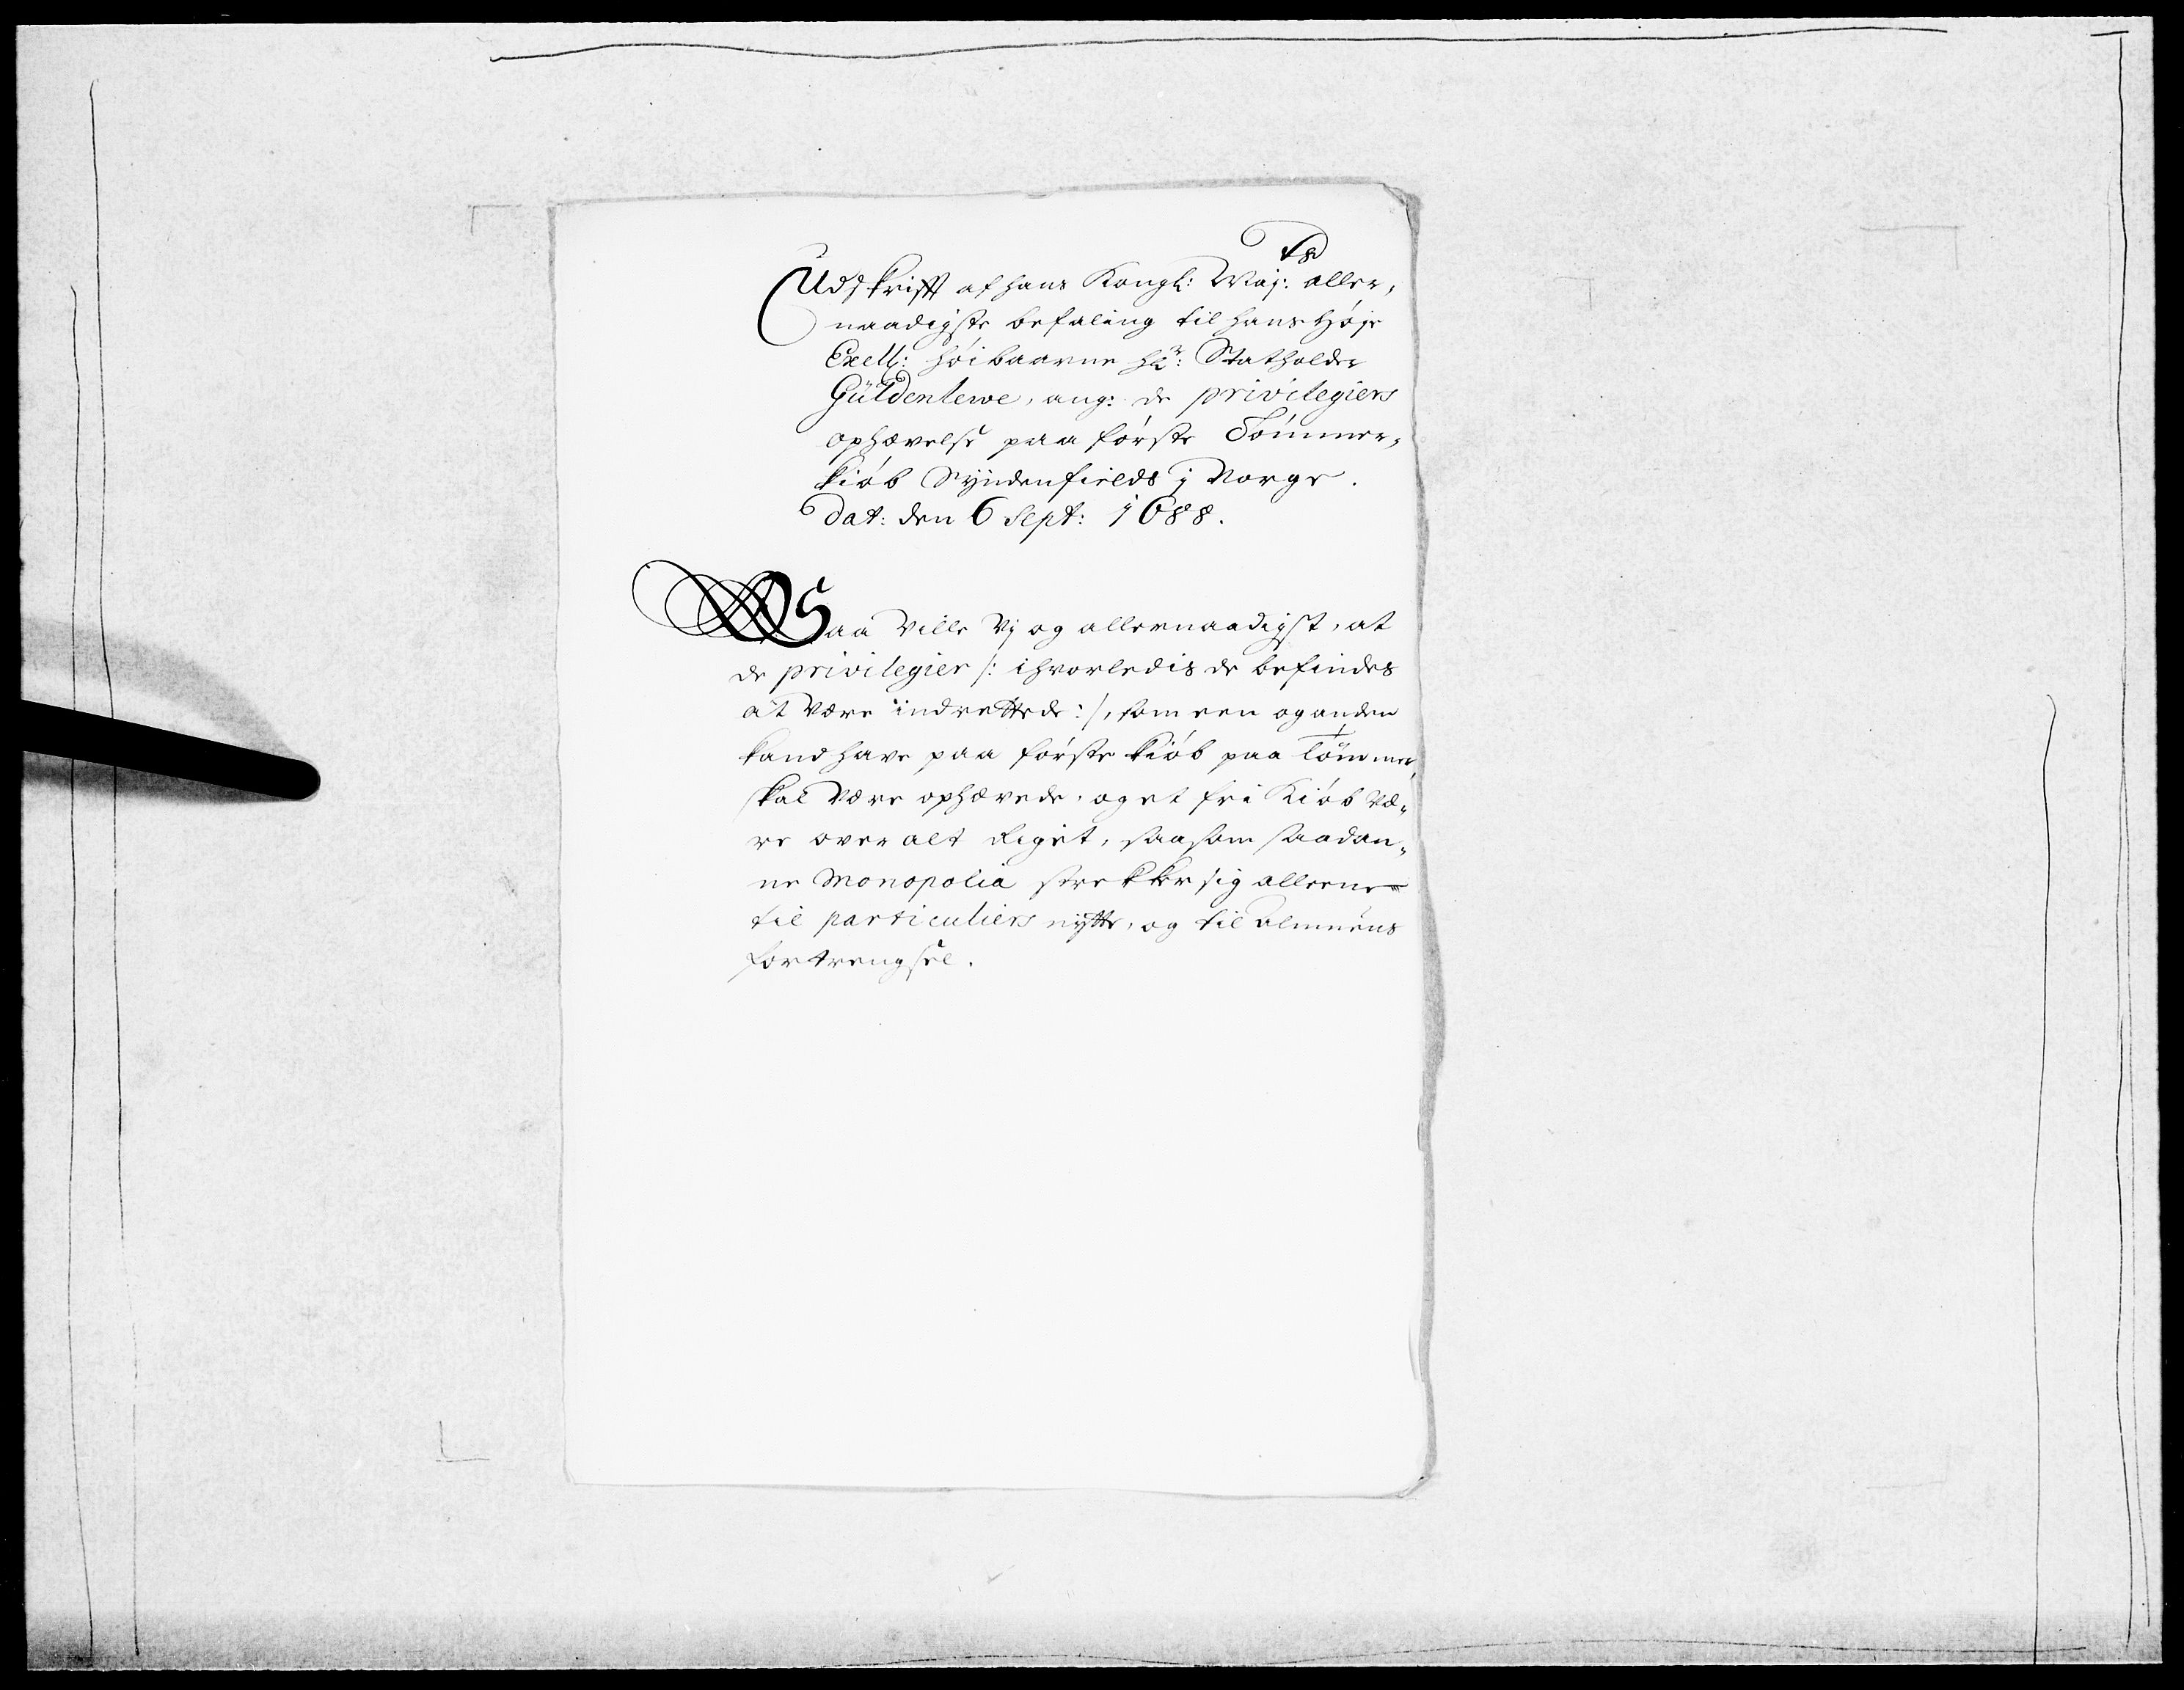 Udskrifft af hans Kongl: Maj: aller,
naadigste befaling til hans Høje
Exell: høibaarne hr: Statholder
Güldenlewe, ang: de privilegiers
ophævelse paa første Tömmer,
kiøb Syndenfields i Norge.
dat: den 6 Sept: 1688.
Saa Ville Vj og allernaadigst, at
de privilegier /: ihvorledis de befindes
at være indrettede :/, som een og anden
kand have paa første kiøb paa Tömmer,
skal være ophævede, og et fri Kiøb væ,
re over alt Riget, saasom saadan,
ne Monopolia strekker sig alleene
til particuliers nytte, og til almuens
fortrengsel.